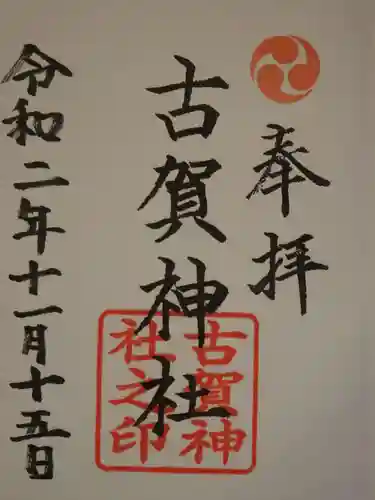 奉拝
古賀神社
令和二年十一月十五日
古賀神
社之印